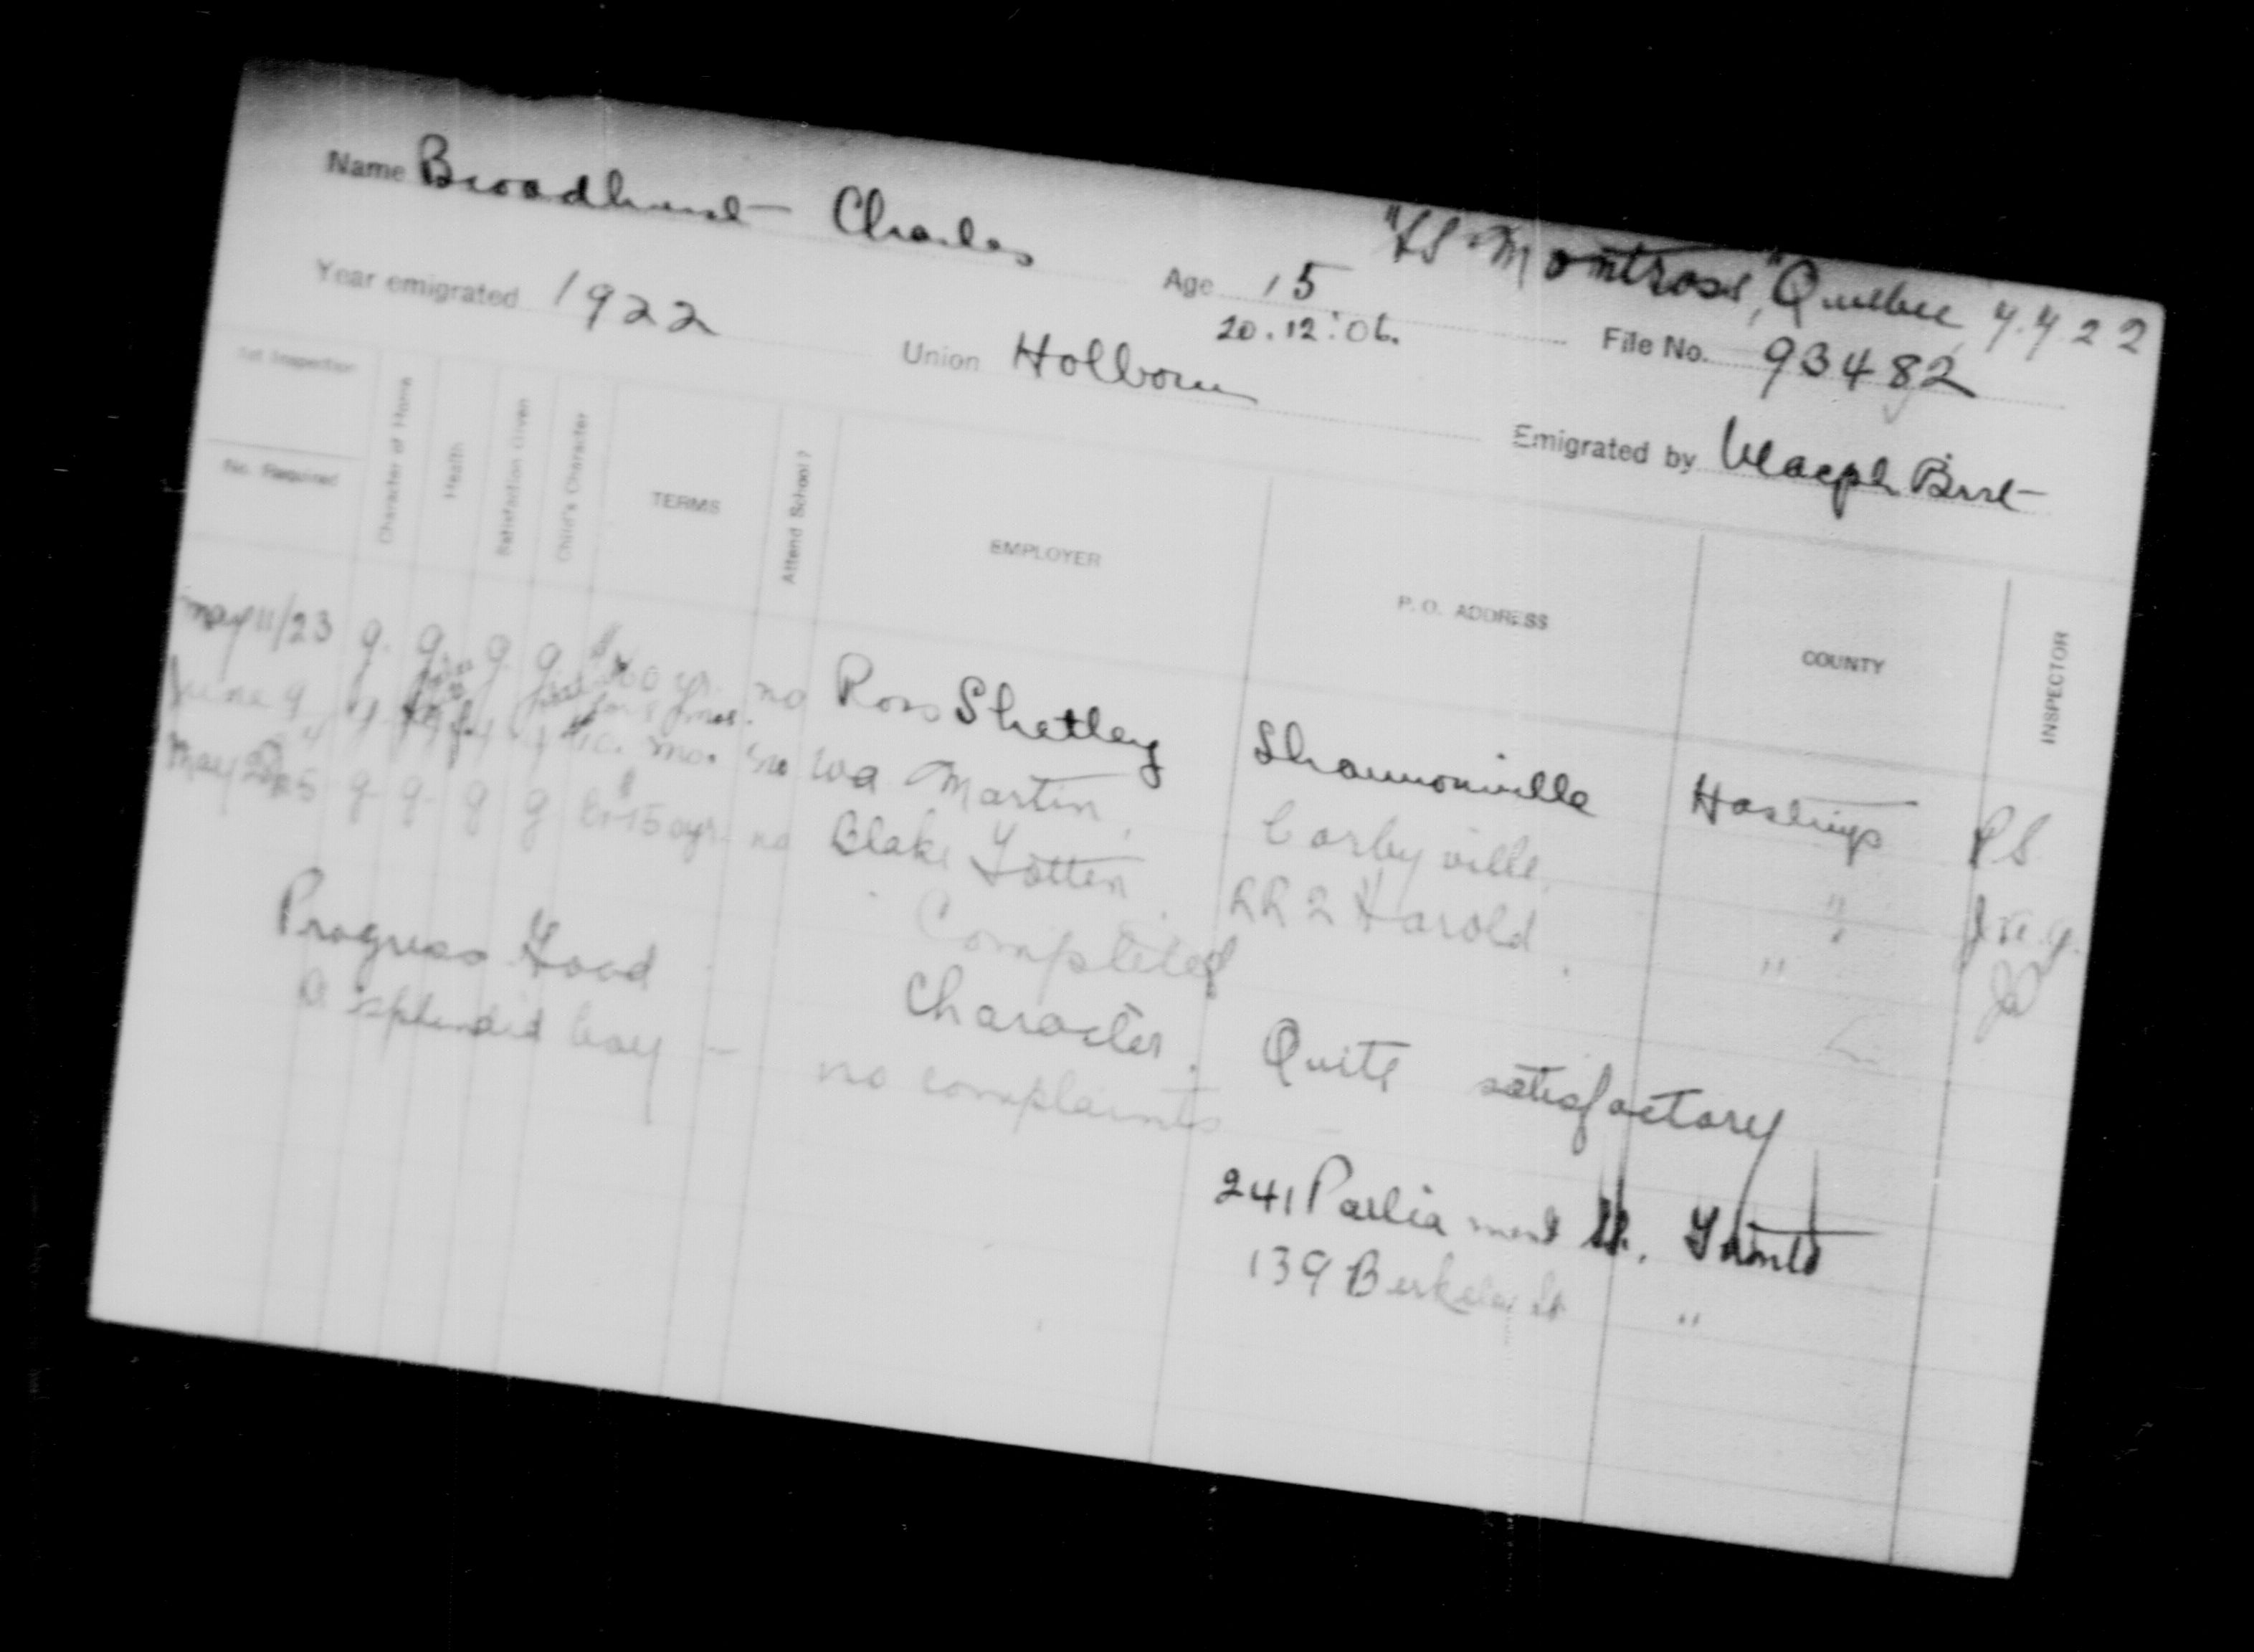 Name Broadhurst Charles Age 15 "SS Montrose", Quebec 7.7 22
20.12.'06. File No. 93482
Year emigrated 1922 Union Holborn Emigrated by Macph Birt
1st Inspection
No. Required
Character of Home Health Satisfaction Given Child's Character TERMS Attend School? EMPLOYER P. O. ADDRESS COUNTY INSPECTOR
May 11/23 g. g. g g yr. no Ross Shetley Shannonville Hastings PS
June 9 g mo. no Martin Corbyville "
May 25 g g g g 150 yr. no Blake Totten RR2 Harold "
Completed
Progress Good Character. Quite satisfactory
A splendid boy — no complaints
241 Parliament St. Toronto
139 Berkeley St "